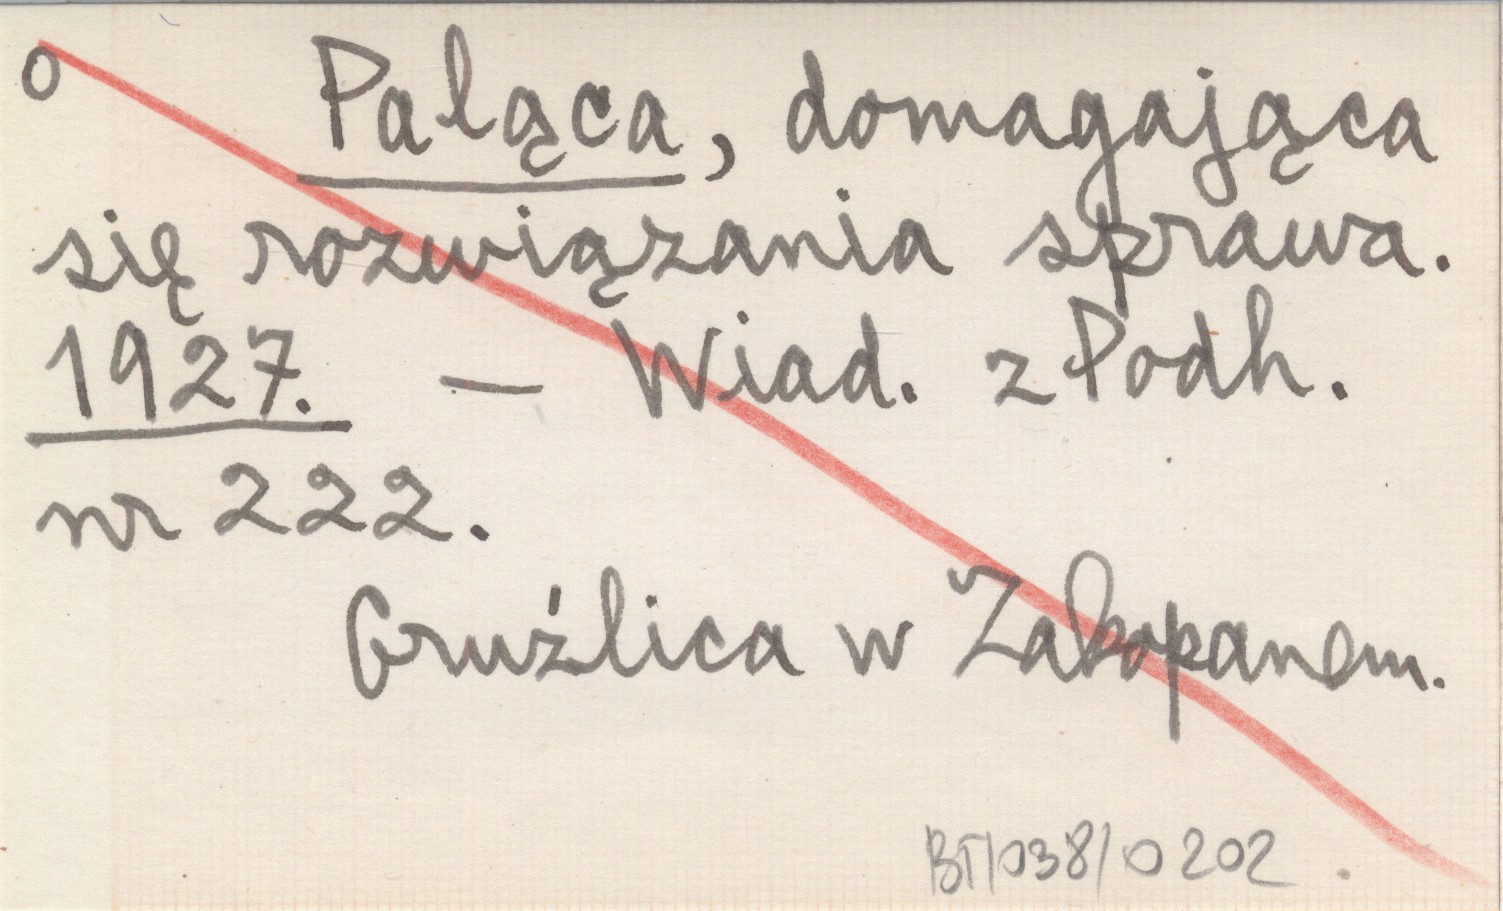 o Paląca, domagająca
się rozwiązania sprawa.
1927. — Wiad. z Podh.
nr 222.
Gruźlica w Zakopanem.
BT/038/0202.